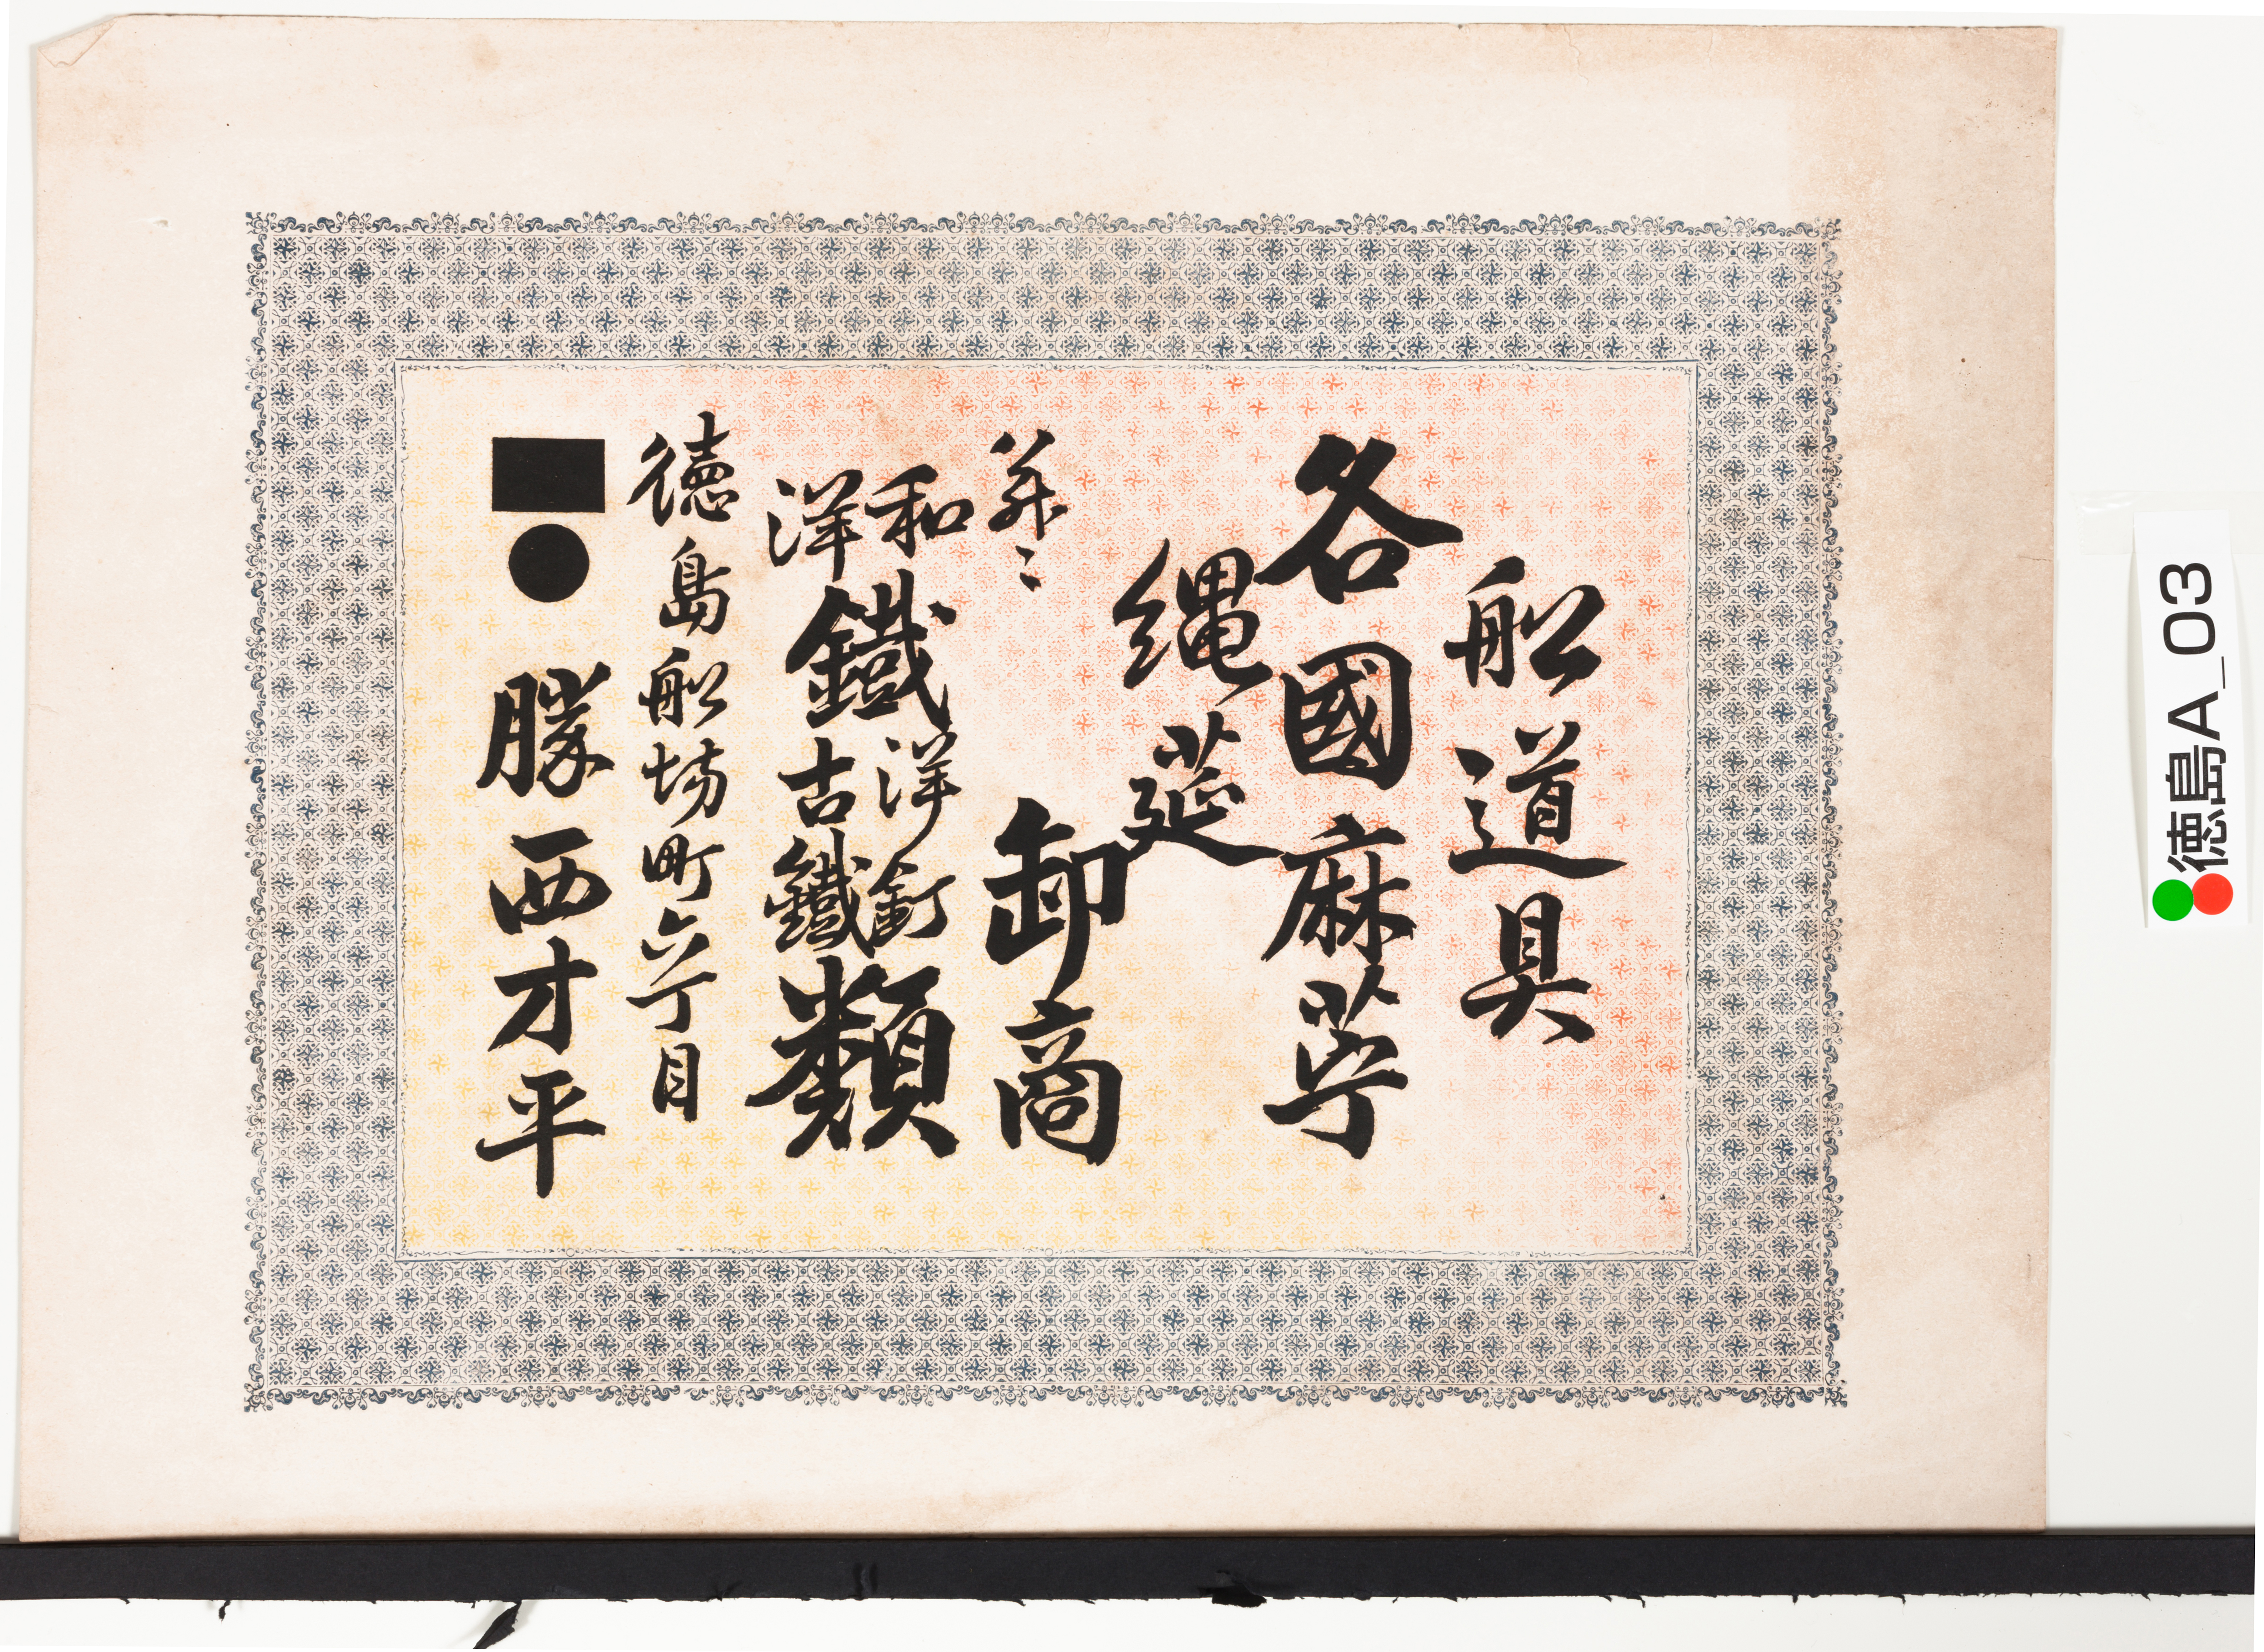 船道具
各國麻苧
縄莚
卸商
并ニ
和洋鐵洋釘古鐵類
徳島船場町六丁目
■● 勝西才平
徳島A_03